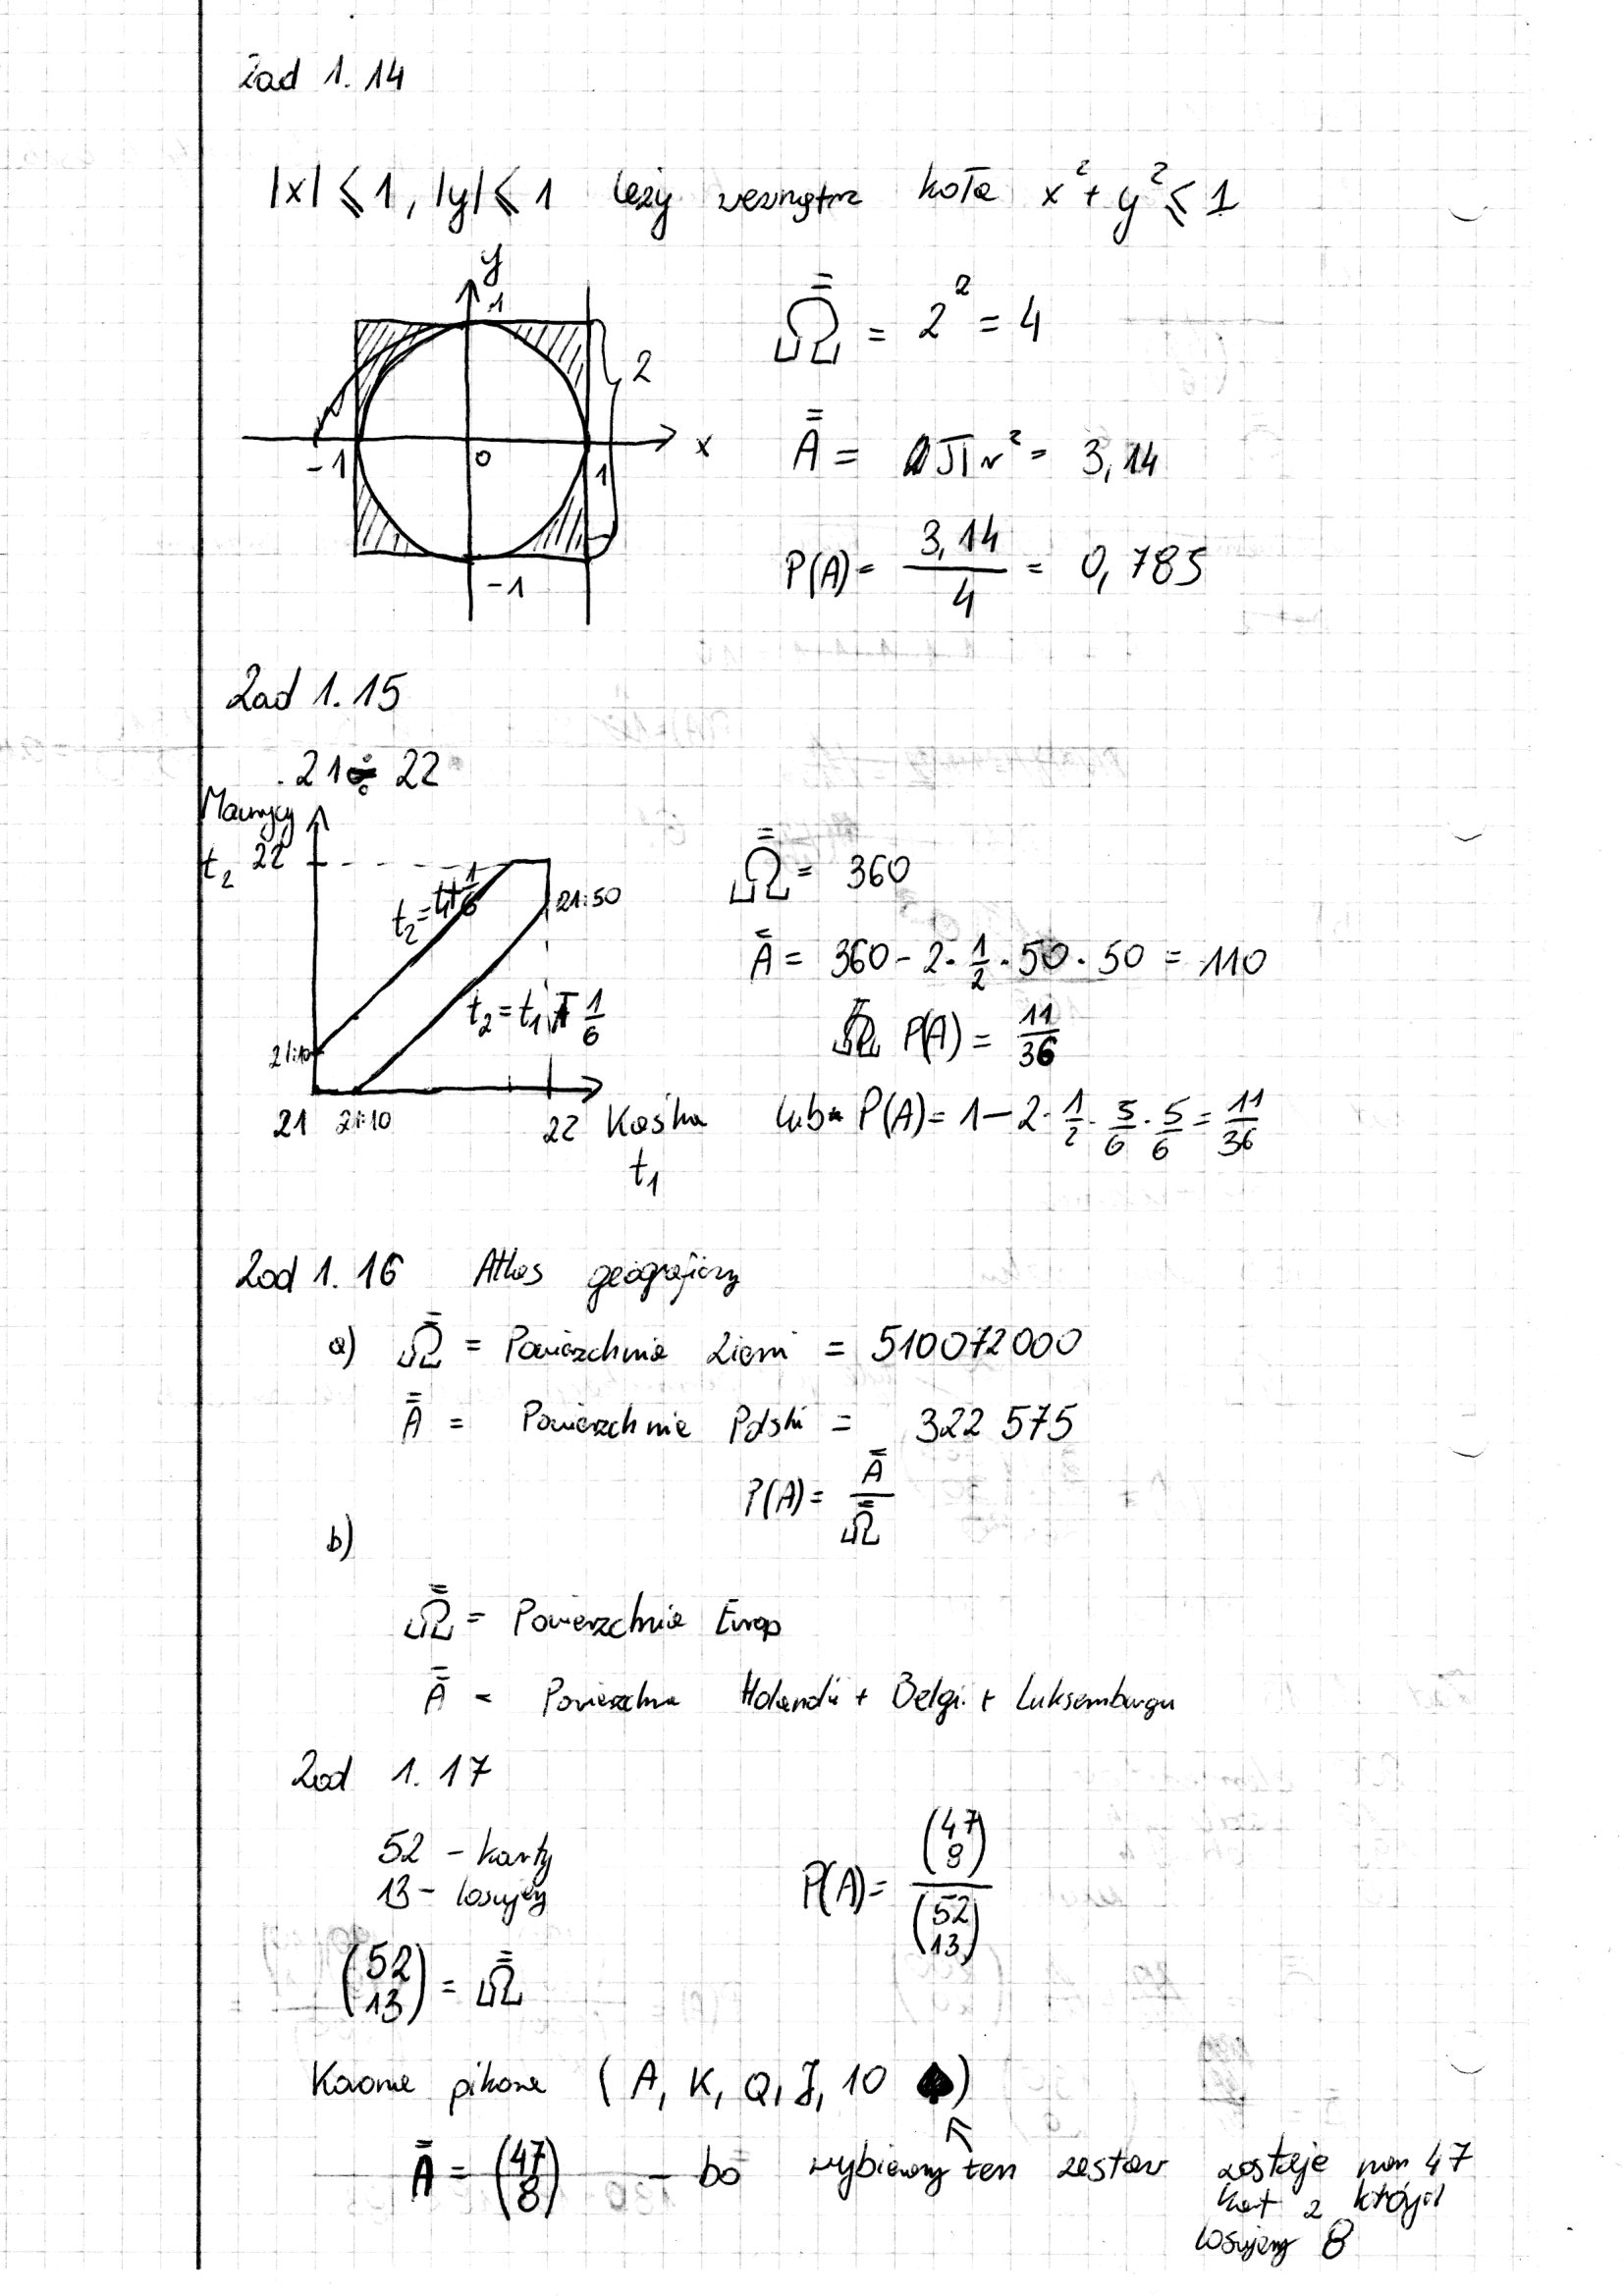 Zad 1.14
|x| ≤ 1, |y| ≤ 1 leży wewnątrz koła x² + y² ≤ 1
y
1
2
-1
0
1
x
-1
Ω̿ = 2² = 4
A̿ = πr² = 3,14
P(A) = 3,14 / 4 = 0,785
Zad 1.15
21 ÷ 22
Maurycy
t₂ 22
t₂ = t₁ + 1/6
21:50
t₂ = t₁ - 1/6
21:10
21 21:10 22 Kaśka
t₁
Ω̿ = 360
A̿ = 360 - 2 · 1/2 · 50 · 50 = 110
P(A) = 11/36
lub P(A) = 1 - 2 · 1/2 · 5/6 · 5/6 = 11/36
Zad 1.16 Atlas geograficzny
a) Ω̿ = Powierzchnia Ziemi = 510072000
A̿ = Powierzchnia Polski = 322 575
P(A) = A̿ / Ω̿
b)
Ω̿ = Powierzchnia Europ
A̿ = Powierzchna Holandii + Belgi + Luksemburgu
Zad 1.17
52 - karty
13 - losujey
(52 13) = Ω̿
P(A) = (47 8) / (52 13)
Korona pikowa (A, K, Q, J, 10 ♠)
A̿ = (47 8) - bo wybieramy ten zestaw zostaje nam 47
kart z których
losujemy 8